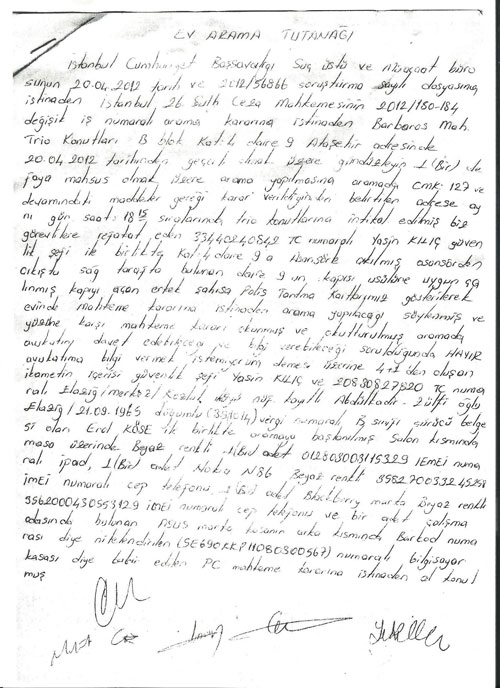 EV ARAMA TUTANAĞI
İstanbul Cumhuriyet Başsavcılığı Suç üstü ve Müracaat büro
sunun 20.04.2012 tarih ve 2012/56866 soruşturma sayılı dosyasına
istinaden İstanbul 26 Sulh Ceza Mahkemesinin 2012/180-184
değişik iş numaralı arama kararına istinaden Barbaros Mah.
Trio Konutları B blok Kat:4 daire 9 Ataşehir adresinde
20.04.2012 tarihinden geçerli olmak üzere gündüzleyin 1(Bir) de
faya mahsus olmak üzere arama yapılmasına aramada CMK 127 ve
devamındaki maddeler gereği karar verildiğinden belirtilen adrese ay
nı gün saat: 18 15 sıralarında trio konutlarına intikal edilmiş biz
görevlilere refakat eden 33440240842 TC numaralı Yasin KILIÇ güven
lik şefi ile birlikte Kat:4 daire 9 a Asansörle çıkılmış asansörden
çıkışta sağ tarafta bulunan daire 9 un kapısı usülüne uygun ça
lınmış kapıyı açan erkek şahısa Polis Tanıtma Kartlarımız gösterilerek
evinde mahkeme kararına istinaden arama yapılacağı söylenmiş ve
yüzüne karşı mahkeme kararı okunmuş ve okutturulmuş aramada
avukatını davet edebileceği ve bilgi verebileceği sorulduğunda HAYIR
avukatıma bilgi vermek istemiyorum demesi üzerine 4+1 den oluşan
ikametin içerisi güvenlik şefi Yasin KILIÇ ve 20830827820 TC numa
ralı Elazığ/merkez/ nüf kayıtlı Abdülkadir-Zülfi oğlu
Elazığ/21.09.1965 doğumlu vergi numaralı, B sınıfı sürücü belge
si olan Erol KÖSE ile birlikte aramaya başlanılmış Salon kısmında
masa üzerinde Beyaz renkli 1(Bir) adet 012803003115329 IEMEI numa
ralı ipad, 1(Bir) adet Nokia N86 Beyaz renkli
imei numaralı cep telefonu, 1(Bir) adet Blackberry marka Beyaz renkli
3562000430553129 IMEI numaralı cep telefonu ve bir adet çalışma
odasında bulunan ASUS marka kasanın arka kısmında Barkod numa
rası diye nitelendirilen numaralı bilgisayar
kasası diye tabir edilen PC mahkeme kararına istinaden el konul
muş